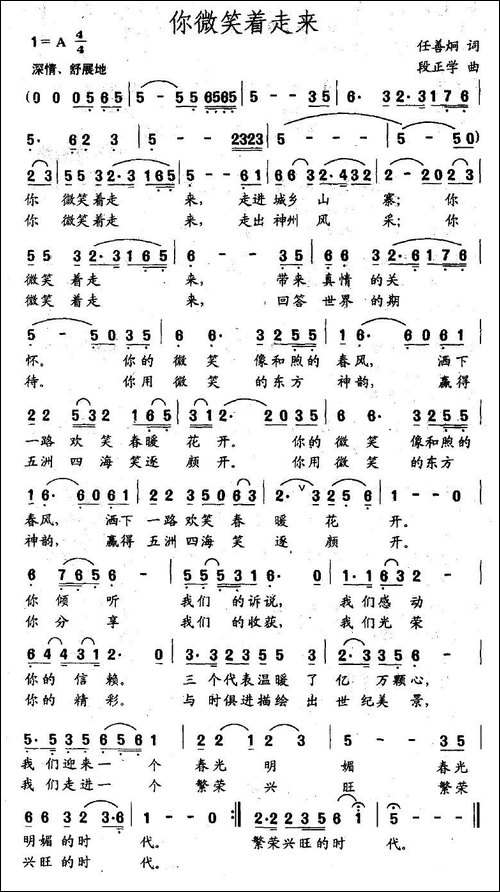 你微笑着走来
1=A 4/4
任善炯 词
深情、舒展地
段正学 曲
(0 0 0 5 6 5 | 5 - 5 5 6 5 6 5 | 5 - - 3 5 | 6· 3 2·3 1 7 6 |
5· 6 2 3 | 5 - - 2 3 2 3 | 5 - - - | 5 - 5 5 0 )
2 3 | 5 5 5 3 2·3 1 6 5 | 5 - 6 1 | 6 6 3 3 2·4 3 2 | 2 - 2 0 2 3 |
你 微笑着走 来, 走进城乡山 寨; 你
你 微笑着走 来, 走出神州风 采; 你
5 5 3 2·3 1 6 5 | 6 - - 3 5 | 6 6 3 2·6 1 7 6 |
微笑着走 来, 带来真情的关
微笑着走 来, 回答世界的期
5 - 5 0 3 5 | 6 6· 3 2 5 5 | 1 6· 6 0 6 1 |
怀。 你的微笑像和煦的春风, 洒下
待。 你用微笑的东方神韵, 赢得
2 2 5 3 2 1 6 5 | 3 1 2· 2 0 3 5 | 6 6· 3 2 5 5 |
一路欢笑春暖花开。 你的微笑像和煦的
五洲四海笑逐颜开。 你用微笑的东方
1 6· 6 0 6 1 | 2 2 3 5 0 6 3 | 2· 3 2 5 6 | 1 - - 0 |
春风, 洒下一路欢笑春暖花开。
神韵, 赢得五洲四海笑逐颜开。
6 7 6 5 6 - | 5 5 5 3 1 6· 0 | 1·1 6 3 2 - |
你倾听 我们的诉说, 我们感动
你分享 我们的收获, 我们光荣
6 4 4 3 1 2· 0 | 3·5 2 3 2 1 6 | 2·3 3 5 6 - |
你的信赖。 三个代表温暖了亿万颗心,
你的精彩。 与时俱进描绘出世纪美景,
5· 5 3 5 6 5 6 1 | 2 2 1 2 3 | 5 - - 3 5 |
我们迎来一个春光明媚春光
我们走进一个繁荣兴旺繁荣
6 6 6 3 2 3·6 | 1 - - 0 :‖ 2·2 2 3 5 6 | 5 - - - ‖
明媚的时代。 繁荣兴旺的时代。
兴旺的时代。